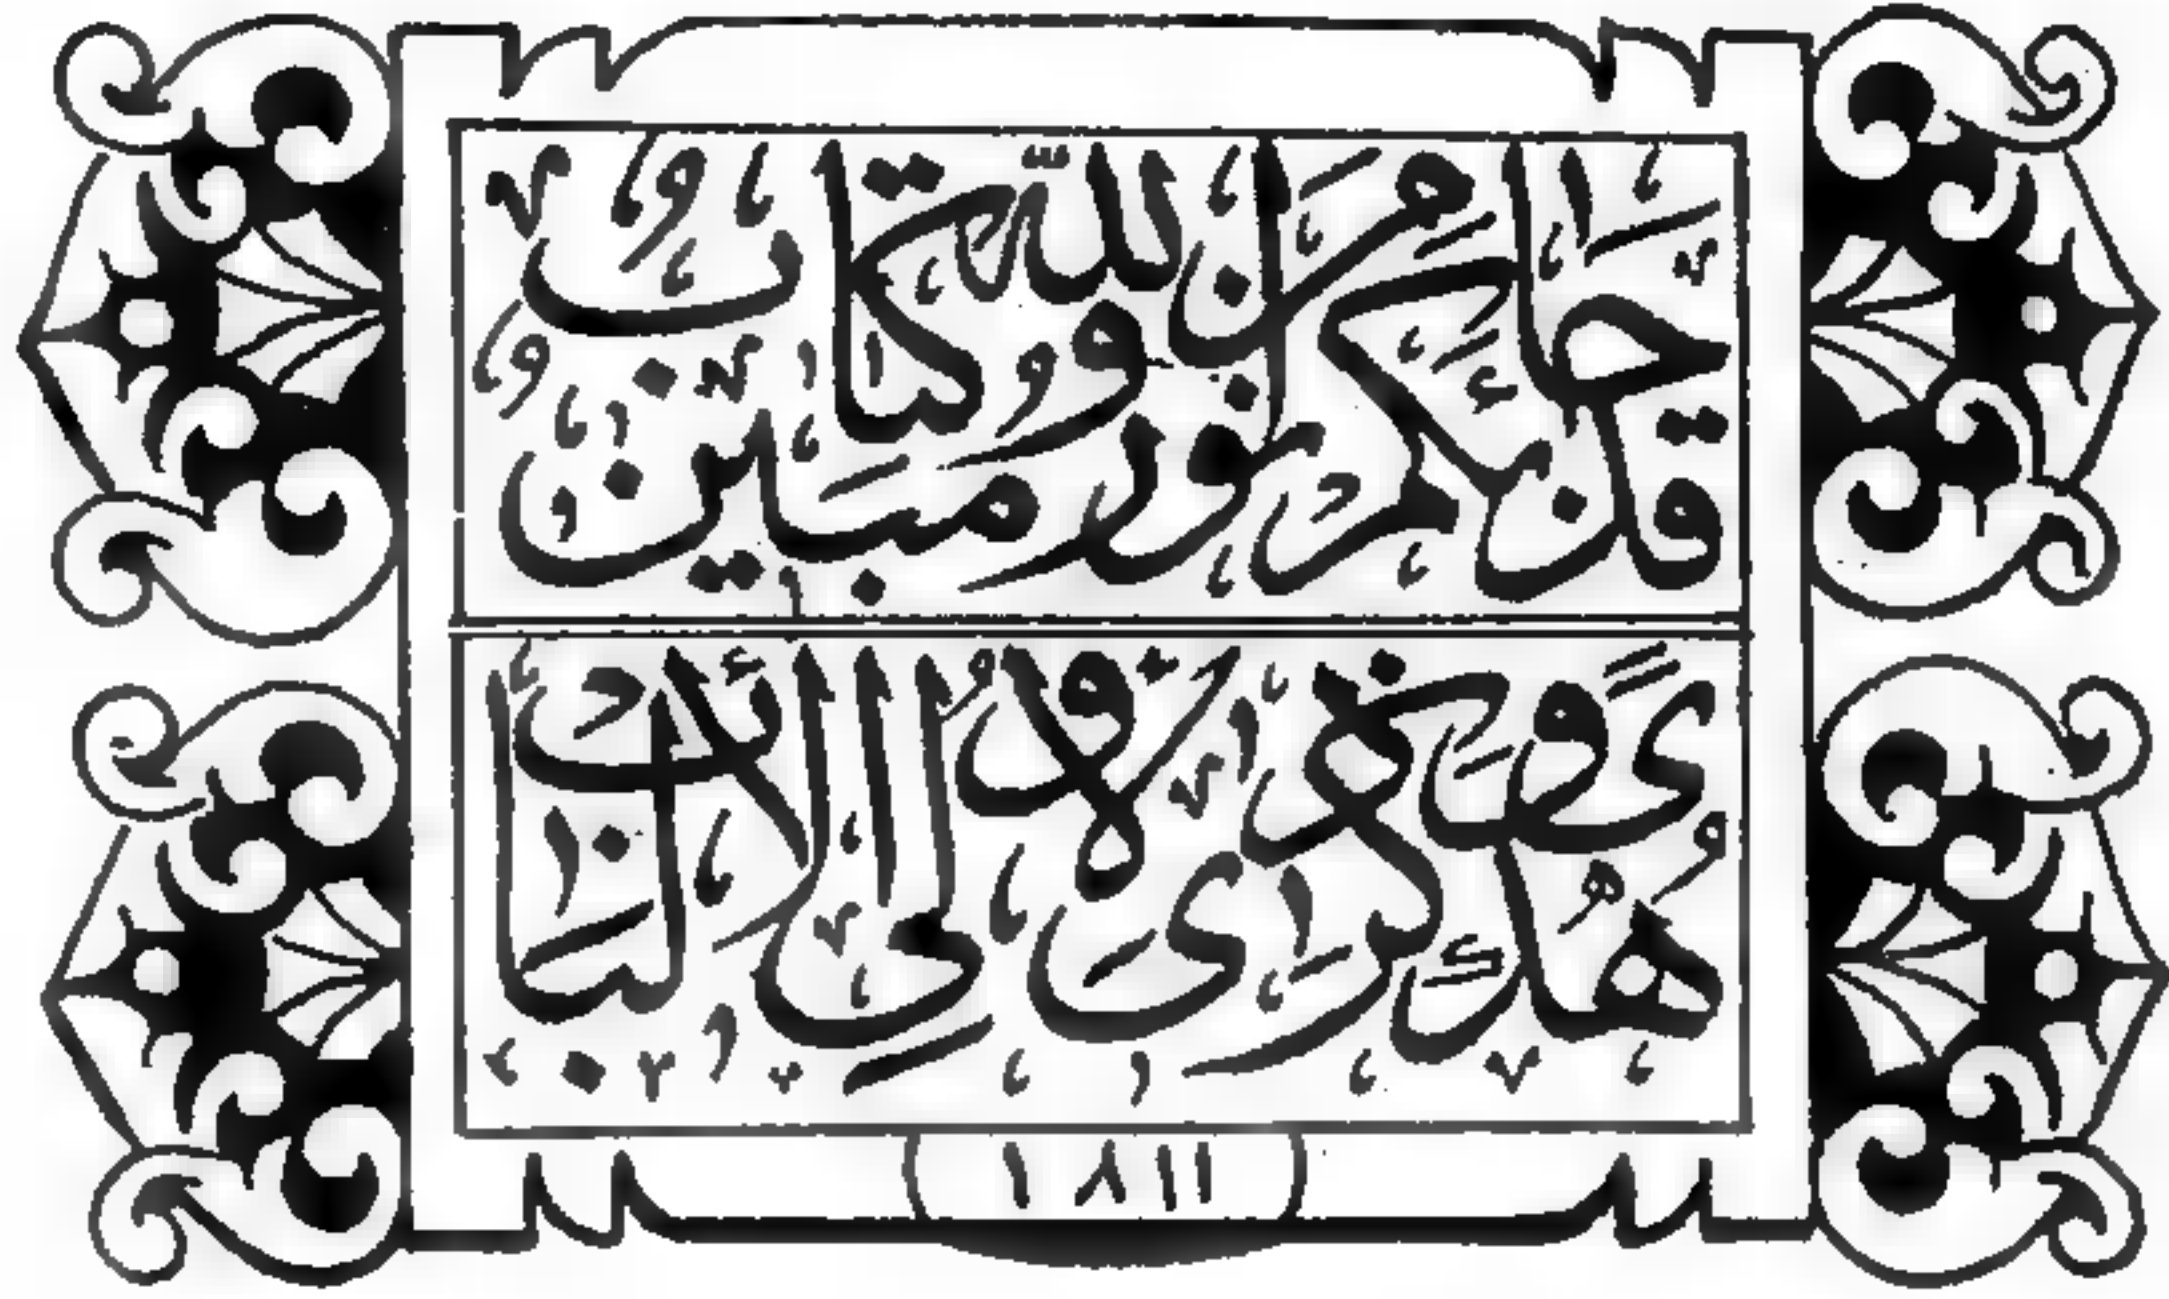 قد جاءكم من الله نور وكتاب مبين
هدى وذكرى لاولي الالباب
١٨١١